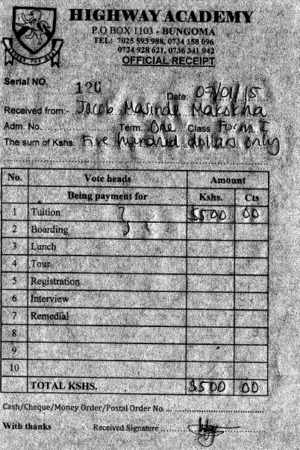 HIGHWAY ACADEMY
P.O BOX 1103 - BUNGOMA
TEL: 7025 593 988, 0734 158 096
0724 928 621, 0736 341 942
OFFICIAL RECEIPT
Serial NO. 120
Date: 07/01/15
Received from:- Jacob Masinde Makokha
Adm. No. Term. One Class Form I
The sum of Kshs. Five hundred dollars only
No. Vote heads Amount
Being payment for Kshs. Cts
1 Tuition $500 00
2 Boarding
3 Lunch
4 Tour
5 Registration
6 Interview
7 Remedial
8
9
10
TOTAL KSHS. $500 00
Cash/Cheque/Money Order/Postal Order No.
With thanks Received Signature